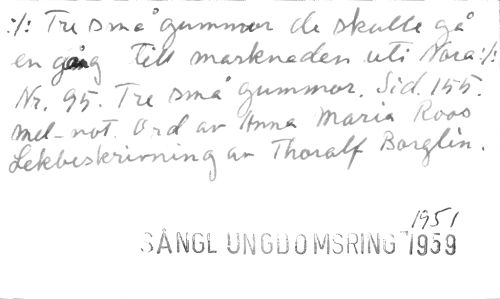 :/: Tre små gummor de skulle gå
en gång till marknaden uti Nora :/:
Nr. 95. Tre små gummor. Sid. 155.
mel-not. Ord av Anna Maria Roos
Lekbeskrivning av Thoralf Borglin.
1951
SÅNGL UNGDOMSRING 1959